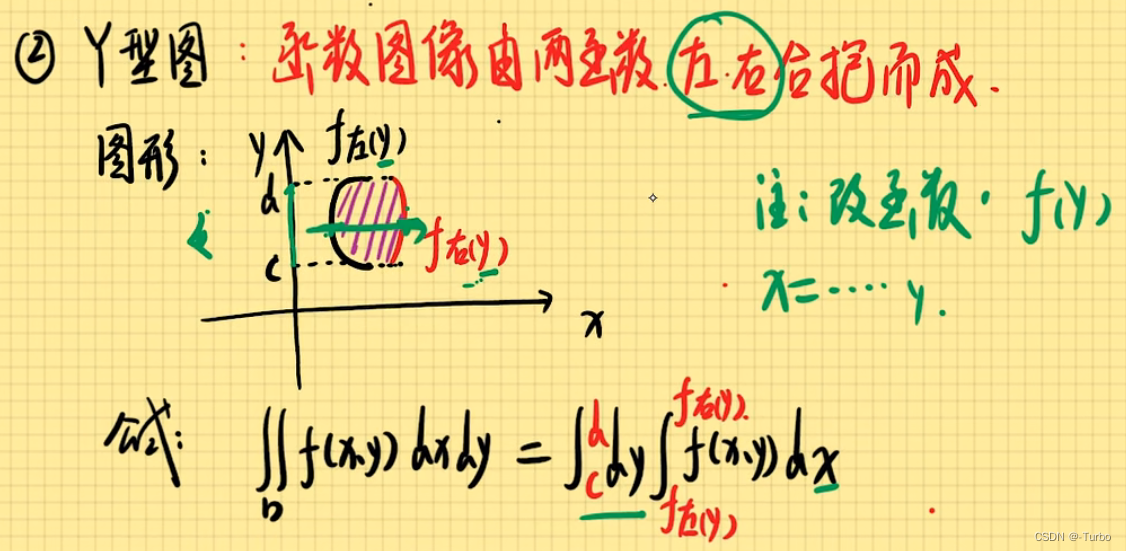 ② Y型图：函数图像由两函数左·右合抱而成.
图形：
y
f左(y)
d
c
f右(y)
x
注：改函数·f(y)
x=····y.
公式:
∬_D f(x,y) dxdy = ∫_c^d dy ∫_{f左(y)}^{f右(y)} f(x,y) dx
CSDN @-Turbo